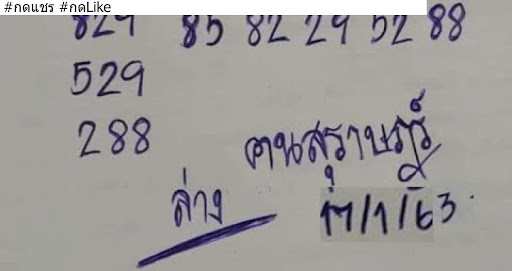 #กดแชร #กดLike
829 85 82 29 52 88
529
288
คนสุราษฎร์
ล่าง
17/1/63